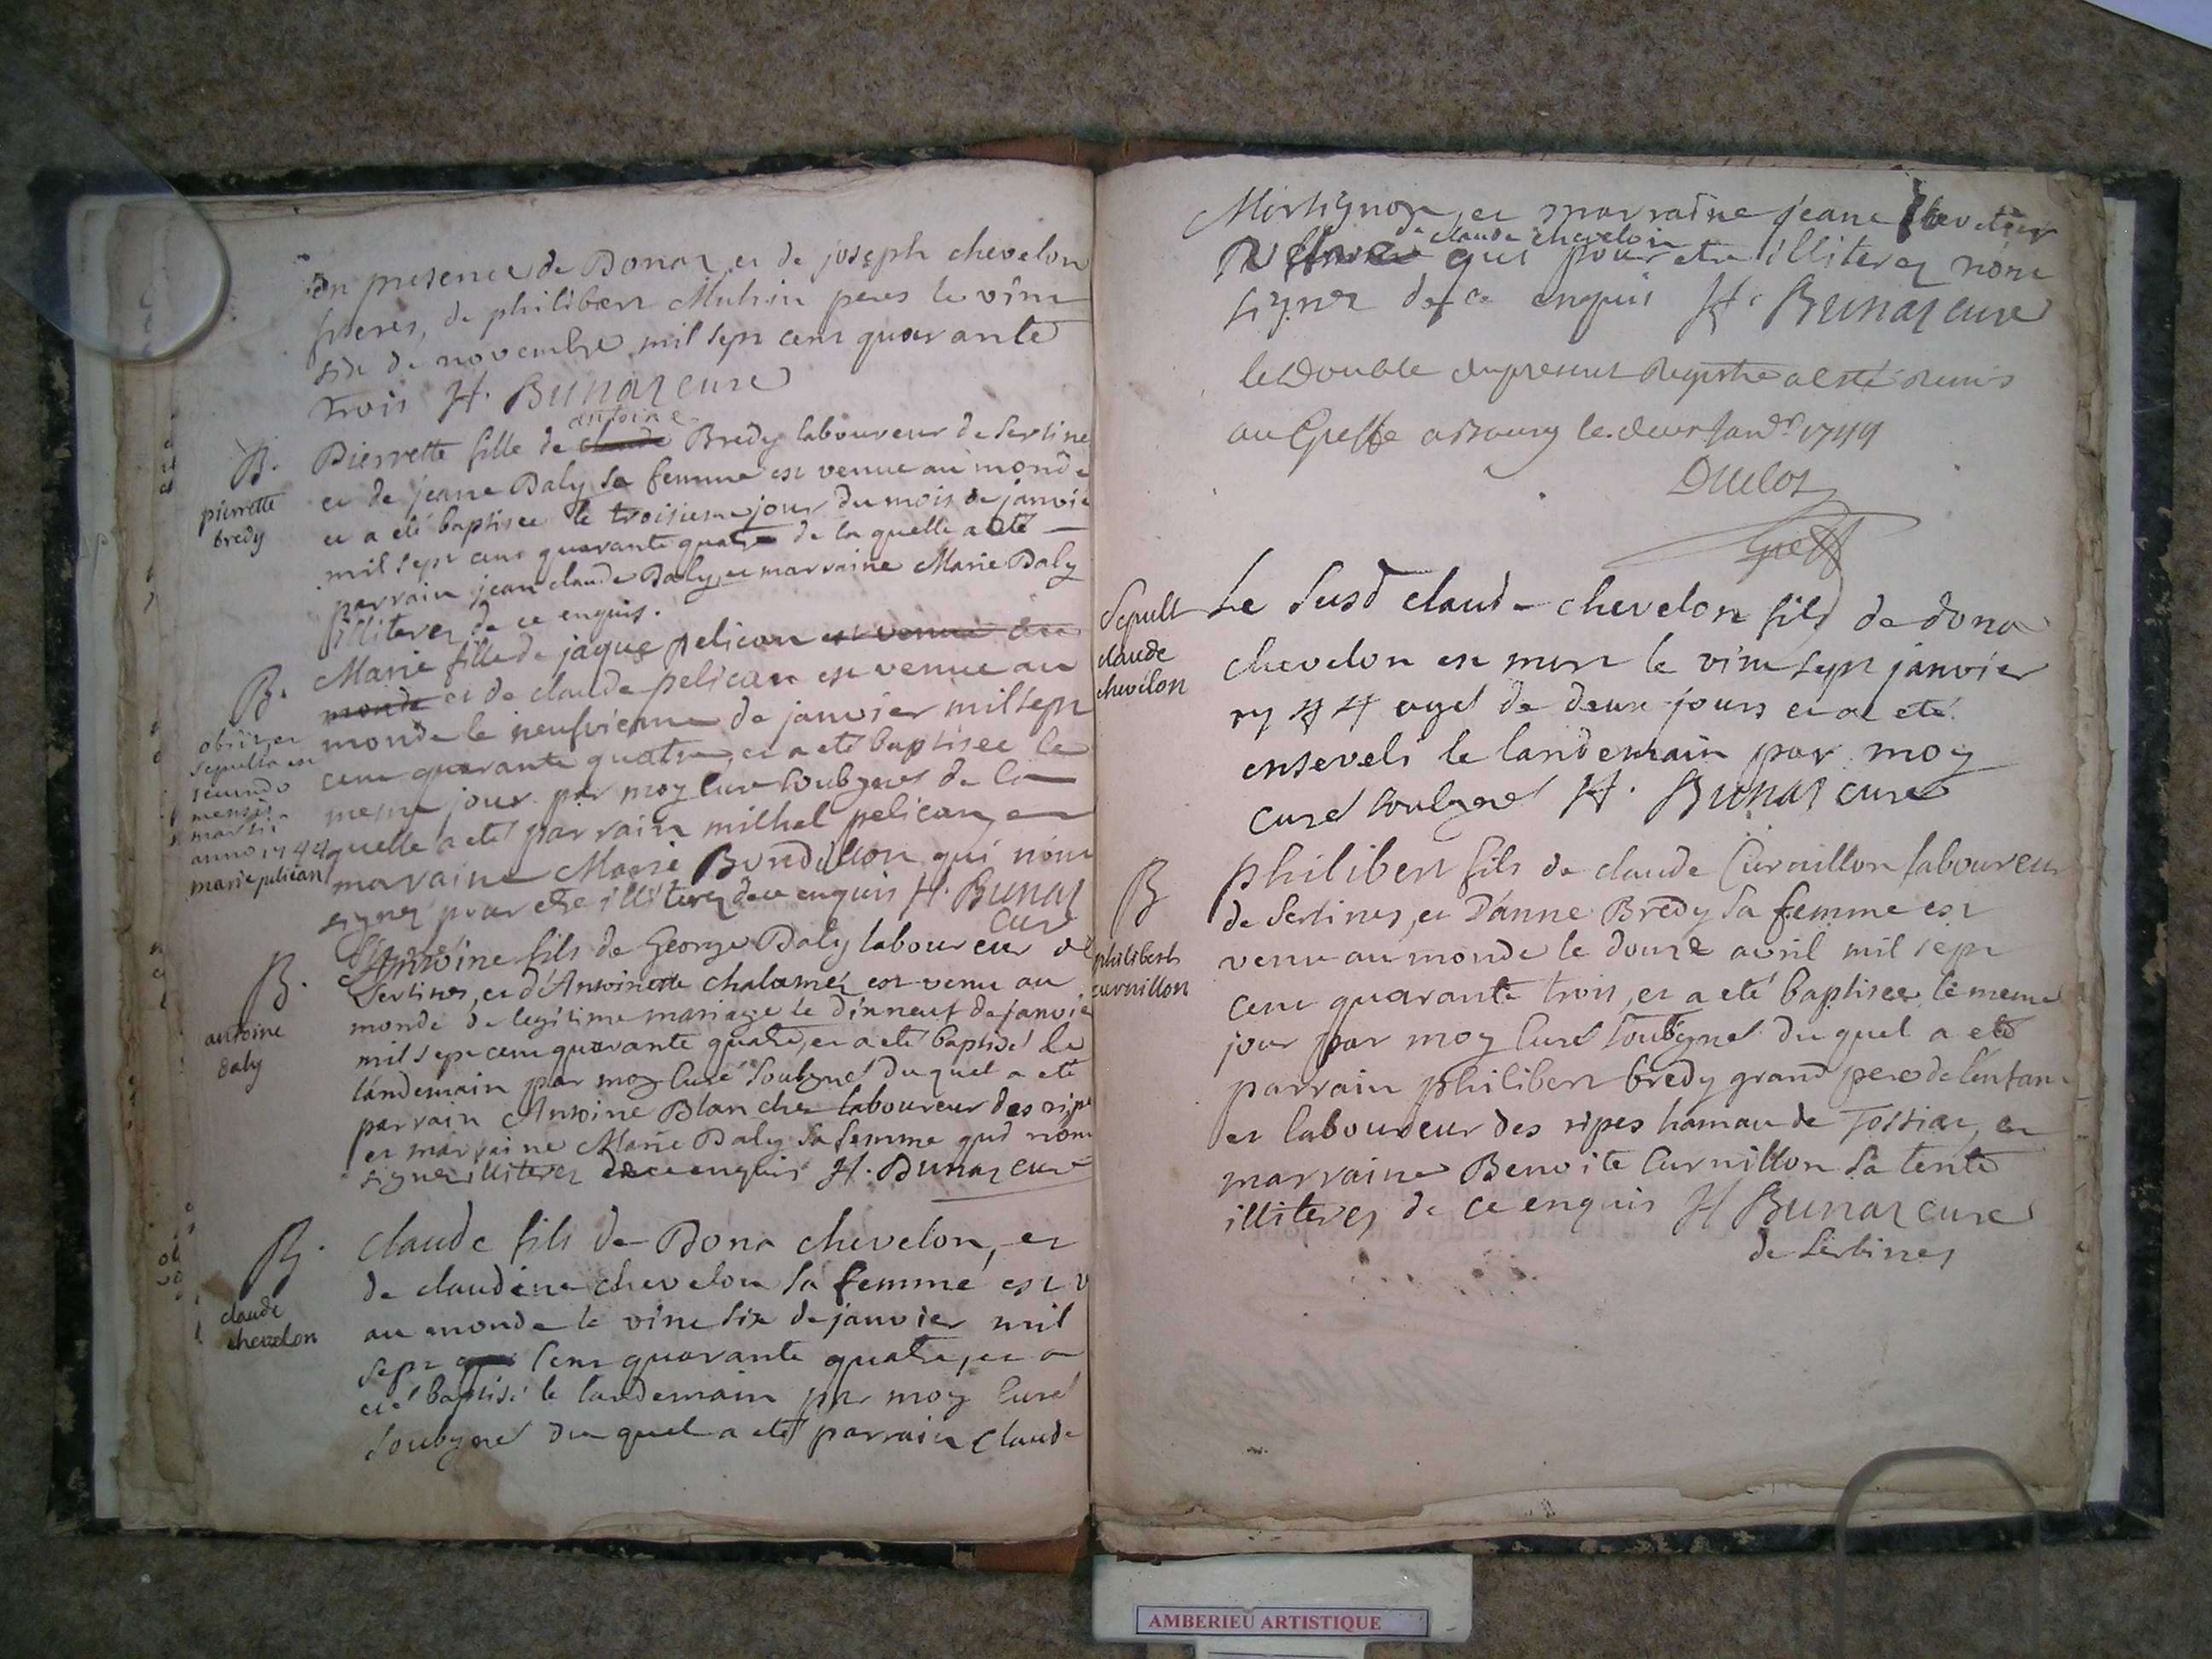 en presence de Donaz et de joseph chevelon
freres, de philibert Muhin peres le vint
six de novembre mil sept cent quarante
trois H. Bunaz curé
B.
pierrette
bredy
antoine
Pierrette fille de claude Bredy laboureur de Sertine
et de jeane Daly sa femme est venue au monde
et a eté baptisee le troisieme jour du mois de janvie
mil sept cent quarante quatre de la quelle a eté
parrain jean claude Daly, et marraine Marie Daly
illiterez de ce enquis.
B.
obiit, et
sepulta est
secundo
mensis
martii
anno 1744
marie pelican
Marie fille de jaque pelican est venue au
monde et de claude pelican est venue au
monde le neufvieme de janvier mil sept
cent quarante quatre, et a eté baptisee le
meme jour par moy curé soubzné de la
quelle a eté parrain michel pelican, et
maraine Marie Bondillon qui n'ont
signez pour etre illiterez de ce enquis H. Bunaz
curé
B.
antoine
daly
Antoine fils de George Daly laboureur de
Sertines, et d'Antoinette chalamez est venu au
monde de legitime mariage le dixneuf de janvie
mil sept cent quarante quatre, et a eté baptisé le
landemain par moy curé soubzné du quel a eté
parrain Antoine Blanchet laboureur des ripe
et marraine Marie Daly sa femme qui n'ont
signez illiterez de ce enquis H. Bunaz curé
B.
claude
chevelon
claude fils de Dona chevelon, et
de claudine chevelon sa femme est v
au monde le vint six de janvier mil
sept cent quarante quatre, et a
eté baptisé le landemain par moy curé
soubzné du quel a eté parrain claude
et marraine jeane
de claude chevelon
qui pour etre illiterez n'ont
signez de ce enquis H. Bunaz curé
le Double du present Registre a esté remis
au Greffe a Bourg le deux Janvr 1749
Duclos
Greff
Sepult
claude
chevelon
Le susd claude chevelon fils de dona
chevelon est mort le vint sept janvier
1744 agé de deux jours et a eté
enseveli le landemain par moy
curé soubzné H. Bunaz curé
B
philibert
curnillon
philibert fils de claude Curnillon laboureur
de Sertines, et D'anne Bredy sa femme est
venu au monde le douze avril mil sept
cent quarante trois, et a eté baptisee le meme
jour par moy Curé soubzné du quel a eté
parrain philibert bredy grand pere de l'enfant
et laboureur des ripes hamau de Tossiat, et
marraine Benoite Curnillon sa tente
illiterez de ce enquis H Bunaz curé
de Sertines
AMBERIEU ARTISTIQUE